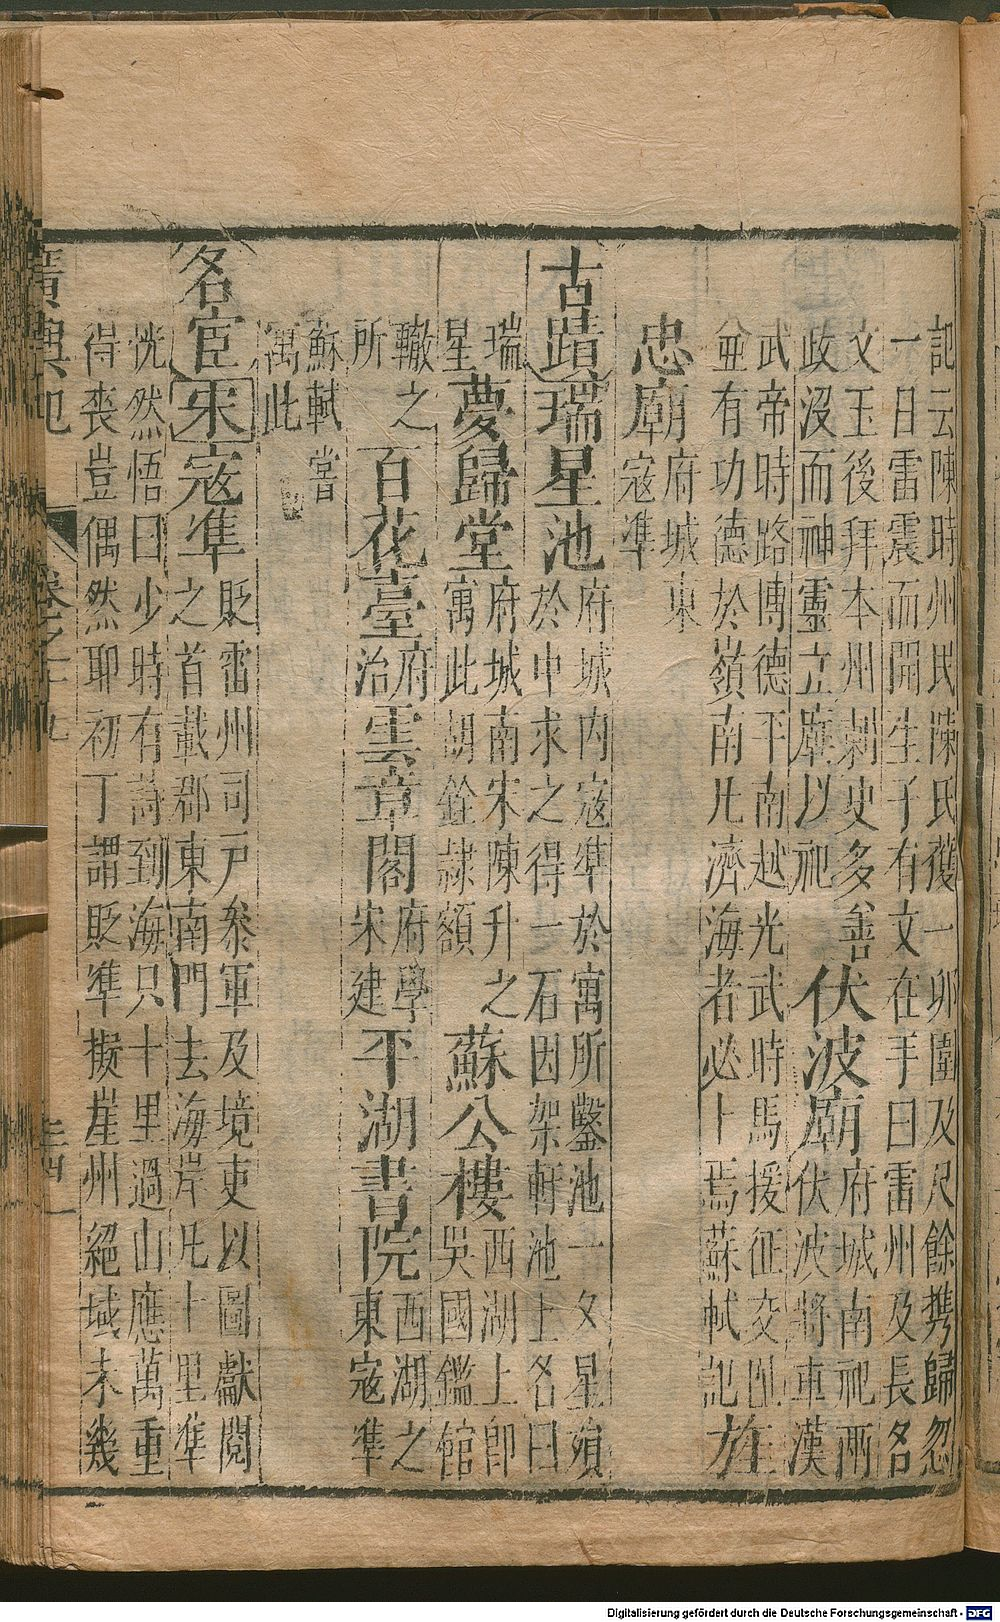 記云陳時州民陳氏獲一卵圍及尺餘携歸忽
一日雷震而開生子有文在手曰雷州及長名
文玉後拜本州刺史多善
政沒而神靈立廟以祀
伏波廟
府城南祀兩
伏波將軍漢
武帝時路博德平南越光武時馬援征交阯
並有功德於嶺南凡濟海者必卜焉蘇軾記
旌
忠廟
府城東
寇準
古蹟
瑞星池
府城內寇準於寓所鑿池一夕星殞
於中求之得一石因架軒池上名曰
瑞
星
夢歸堂
府城南宋陳升之
寓此胡銓隷額
蘇公樓
西湖上即
吳國鑑館
轍之
所
百花臺
府
治
雲章閣
府學
宋建
平湖書院
西湖之
東寇準
蘇軾嘗
寓此
名宦
宋
寇準
貶雷州司戶叅軍及境吏以圖獻閱
之首載郡東南門去海岸凡十里準
恍然悟曰少時有詩到海只十里過山應萬重
得喪豈偶然耶初丁謂貶準擬崖州絕域未幾
廣輿記
卷之十九
Digitalisierung gefördert durch die Deutsche Forschungsgemeinschaft - DFG